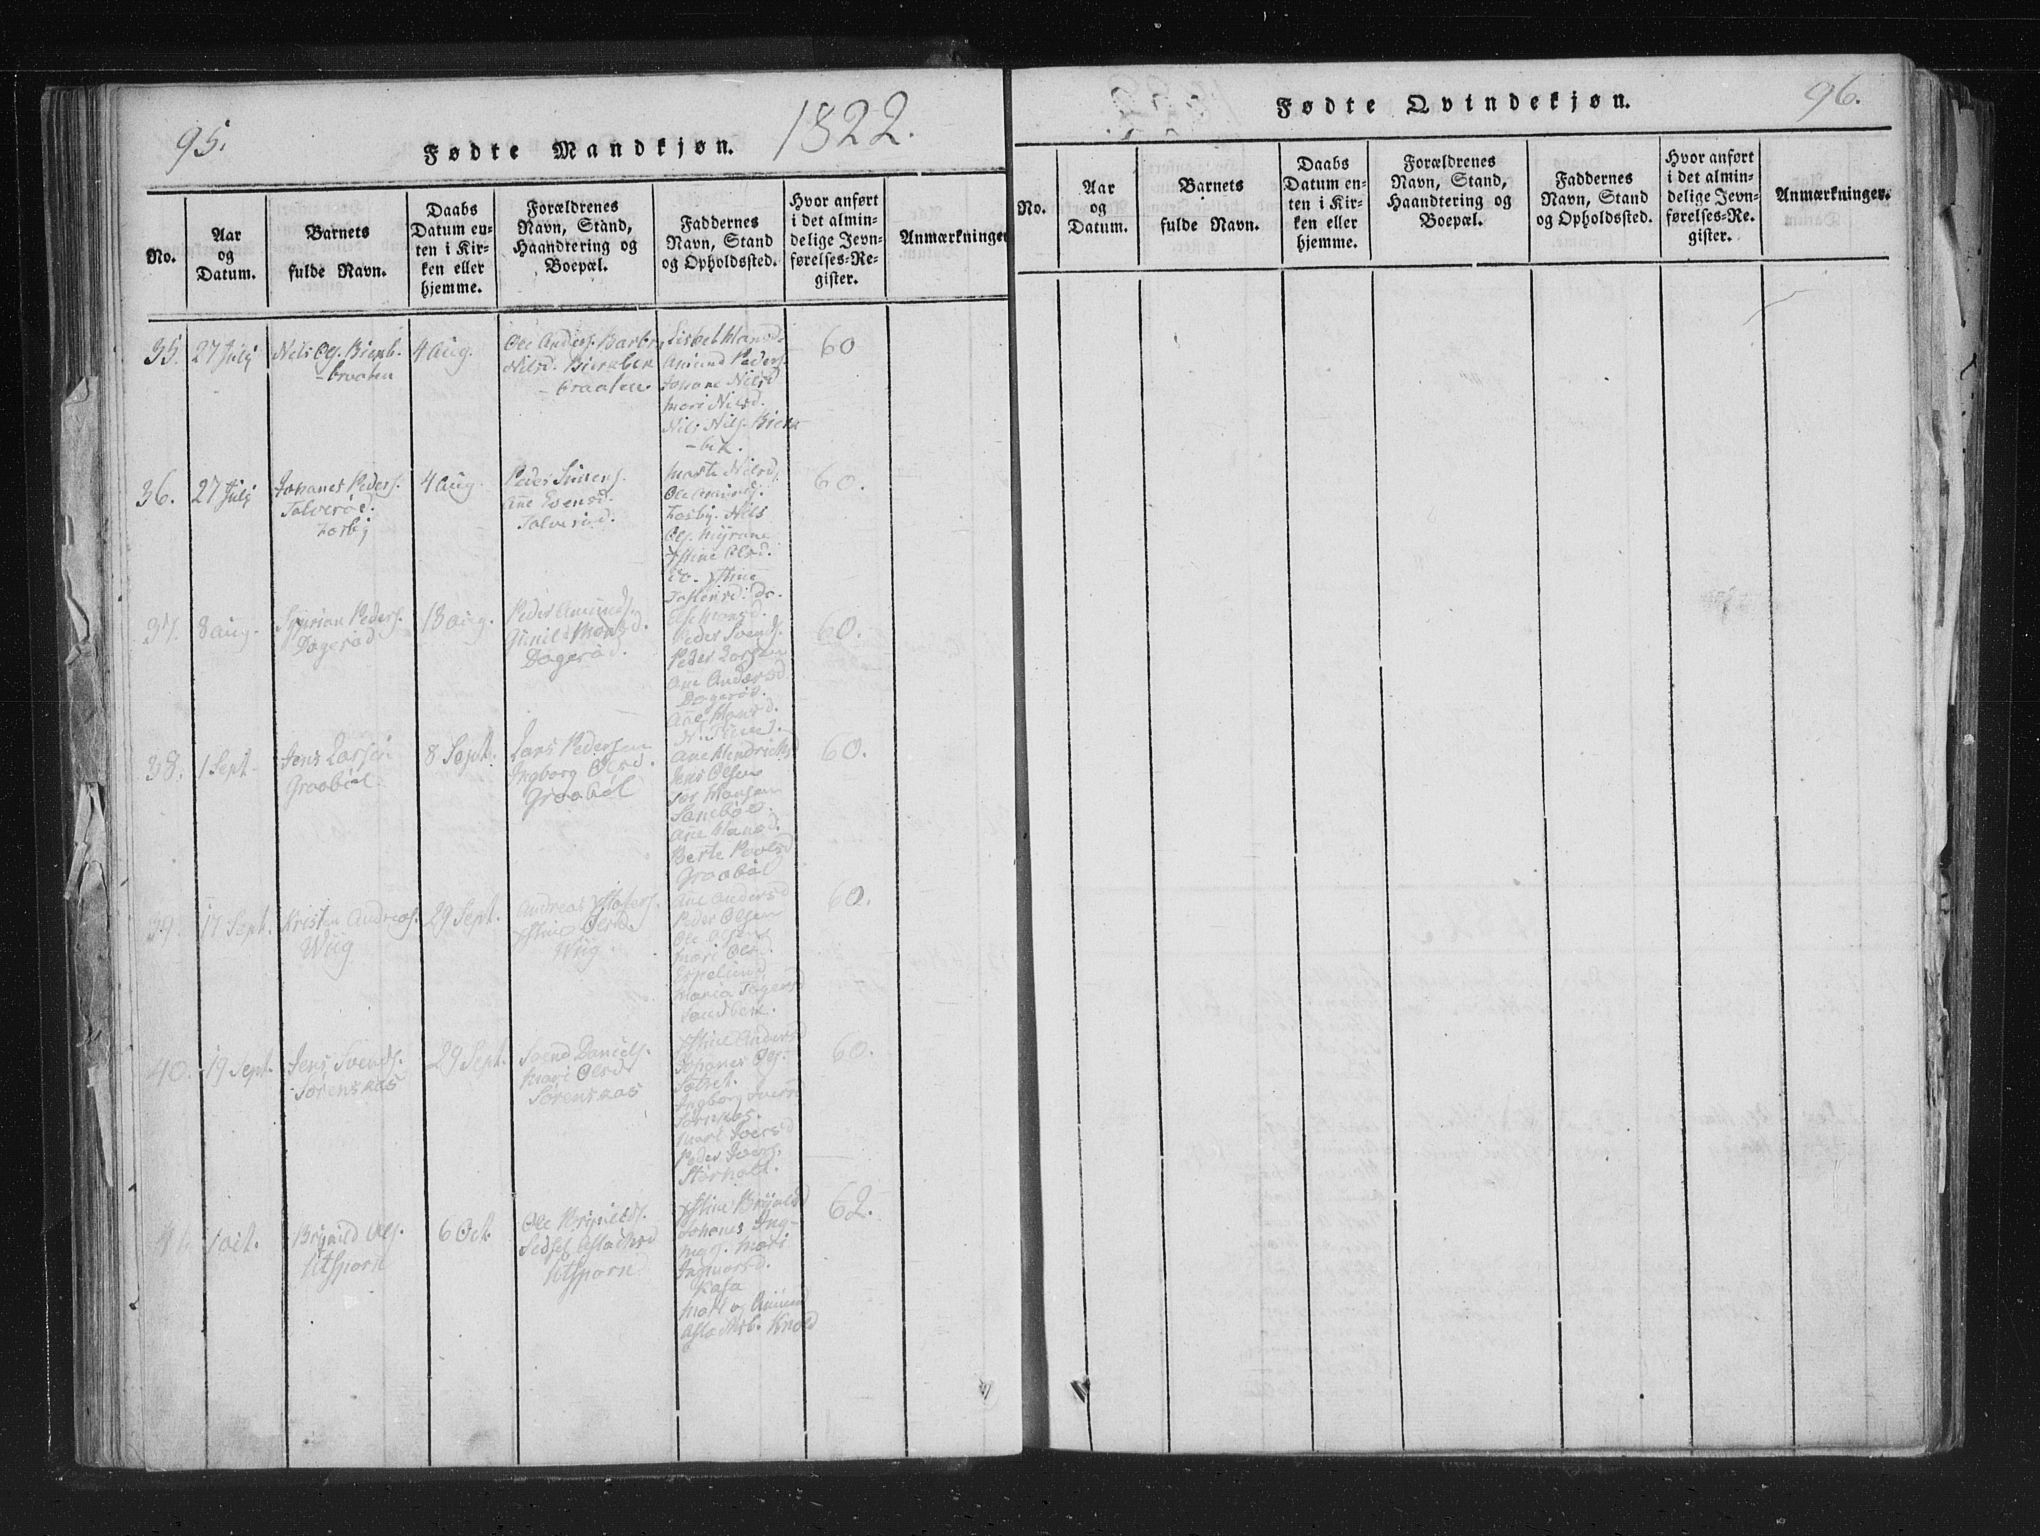 95.
Fødte Mandkjøn.
1822.
No.
Aar
og
Datum.
Barnets
fulde Navn.
Daabs
Datum en-
ten i Kir-
ken eller
hjemme.
Forældrenes
Navn, Stand,
Haandtering og
Boepæl.
Faddernes
Navn, Stand
og Opholdssted.
Hvor anført
i det almin-
delige Jevn-
førelses-Re-
gister.
Anmærkninger
35.
27 Julj
Nils Ols. Bienb-
-braaten
4 Aug.
Ole Anders. Barbr
Nilsd. Bienbek
-braaten.
Lisbet Hansd.
Amund Peders.
Johane Nilsd
Mari Nilsd.
Nils Nils. Bien
-bek.
60
36.
27 Julj
Johanes Peders.
Talverød.
4 Aug.
Peder Simens.
Ane Evensd.
Talverød.
Marte Nilsd.
Ole Amunds.
Nils
Ols. Myrane
Xstine Olsd.
do. Xstine
do.
60.
37.
8 Aug.
Peders.
Dagerød
18 Aug.
Peder Amunds.
Gunild Monsd.
Dagerød.
Else Monsd.
Peder Svends.
Peder Larsen
Ane Andersd
Dagerød.
Ane Hansd.
60.
38.
1 Sept.
Jens Larsen
Graabøl
8 Sept.
Lars Pedersen
Ingborg Olsd.
Graabøl
Ane Hendriksd
Jens Olsen
Hansen
Ane Hansd.
Berte Paulsd
Graabøl
60.
39.
17 Sept.
Kristen Andreas.
Wiig
29 Sept.
Andreas
Xstine Olsd.
Wiig.
Ane Andersd
Peder Olsen
Ole Olsen
Mari Olsd.
Espelund
Maria
Sandbek.
60.
40.
19 Sept.
Jens Svends.
Sørenskaas
29 Sept.
Svend Daniels.
Mari Olsd
Sørenskaas
Xstine Andersd
Johanes Ols.
Ingborg
Mari Iversd
Peder Ivers.
60.
41.
1 Oct.
Brynild Ols.
6 Oct.
Ole Brynilds.
Xstine Brynilds
Johanes Ing-
Mari
Ingvarsd.
Kasa
Mari og Amund
62.
96.
Fødte Qvindekjøn.
No.
Aar
og
Datum.
Barnets
fulde Navn.
Daabs
Datum en-
ten i Kir-
ken eller
hjemme.
Forældrenes
Navn, Stand,
Haandtering og
Boepæl.
Faddernes
Navn, Stand
og Opholdssted.
Hvor anført
i det almin-
delige Jevn-
førelses-Re-
gister.
Anmærkninger.